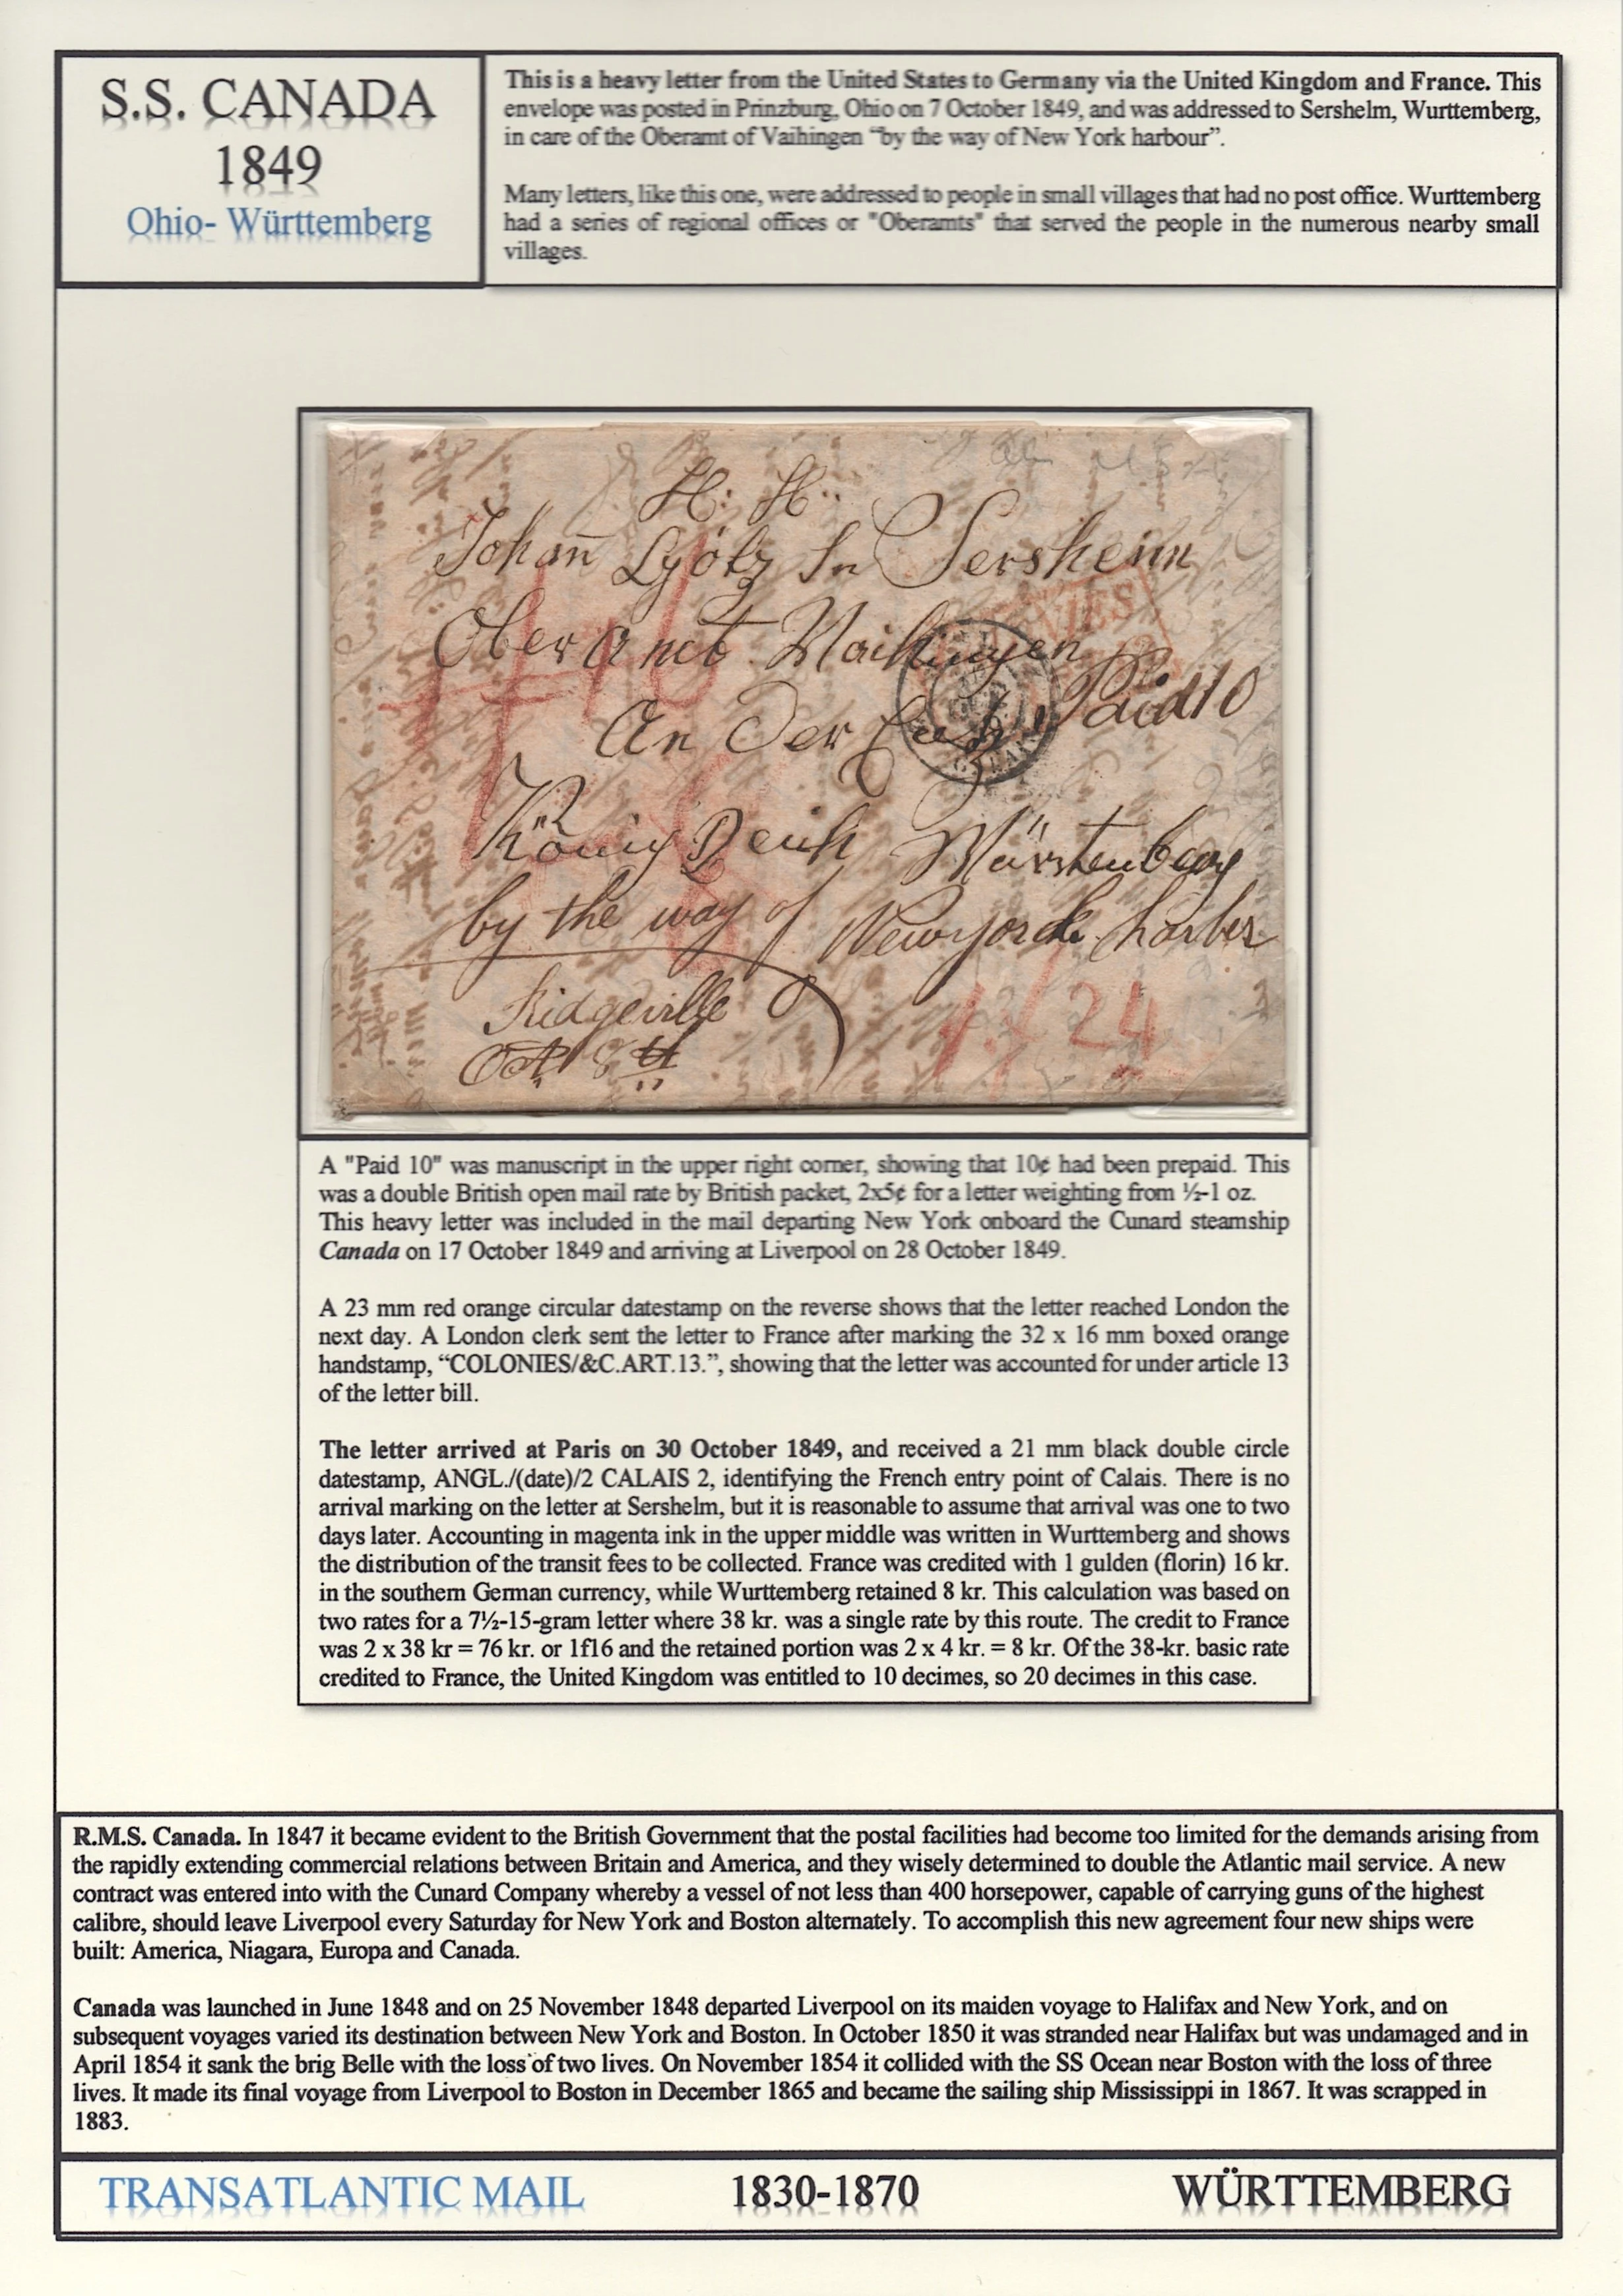 S.S. CANADA
1849
Ohio- Württemberg
This is a heavy letter from the United States to Germany via the United Kingdom and France. This
envelope was posted in Prinzburg, Ohio on 7 October 1849, and was addressed to Sershelm, Wurttemberg,
in care of the Oberamt of Vaihingen “by the way of New York harbour”.
Many letters, like this one, were addressed to people in small villages that had no post office. Wurttemberg
had a series of regional offices or "Oberamts" that served the people in the numerous nearby small
villages.
H: H:
Johan̄ Gjötz In Sersheim
Ober amt Vaihingen
An Der Enz
Paid 10
König Reich Würstenberg
by the way of Newyorck harber
Ridgeville
Oct 8th
1/24
A "Paid 10" was manuscript in the upper right corner, showing that 10¢ had been prepaid. This
was a double British open mail rate by British packet, 2x5¢ for a letter weighting from ½-1 oz.
This heavy letter was included in the mail departing New York onboard the Cunard steamship
Canada on 17 October 1849 and arriving at Liverpool on 28 October 1849.
A 23 mm red orange circular datestamp on the reverse shows that the letter reached London the
next day. A London clerk sent the letter to France after marking the 32 x 16 mm boxed orange
handstamp, “COLONIES/&C.ART.13.”, showing that the letter was accounted for under article 13
of the letter bill.
The letter arrived at Paris on 30 October 1849, and received a 21 mm black double circle
datestamp, ANGL./(date)/2 CALAIS 2, identifying the French entry point of Calais. There is no
arrival marking on the letter at Sershelm, but it is reasonable to assume that arrival was one to two
days later. Accounting in magenta ink in the upper middle was written in Wurttemberg and shows
the distribution of the transit fees to be collected. France was credited with 1 gulden (florin) 16 kr.
in the southern German currency, while Wurttemberg retained 8 kr. This calculation was based on
two rates for a 7½-15-gram letter where 38 kr. was a single rate by this route. The credit to France
was 2 x 38 kr = 76 kr. or 1f16 and the retained portion was 2 x 4 kr. = 8 kr. Of the 38-kr. basic rate
credited to France, the United Kingdom was entitled to 10 decimes, so 20 decimes in this case.
R.M.S. Canada. In 1847 it became evident to the British Government that the postal facilities had become too limited for the demands arising from
the rapidly extending commercial relations between Britain and America, and they wisely determined to double the Atlantic mail service. A new
contract was entered into with the Cunard Company whereby a vessel of not less than 400 horsepower, capable of carrying guns of the highest
calibre, should leave Liverpool every Saturday for New York and Boston alternately. To accomplish this new agreement four new ships were
built: America, Niagara, Europa and Canada.
Canada was launched in June 1848 and on 25 November 1848 departed Liverpool on its maiden voyage to Halifax and New York, and on
subsequent voyages varied its destination between New York and Boston. In October 1850 it was stranded near Halifax but was undamaged and in
April 1854 it sank the brig Belle with the loss of two lives. On November 1854 it collided with the SS Ocean near Boston with the loss of three
lives. It made its final voyage from Liverpool to Boston in December 1865 and became the sailing ship Mississippi in 1867. It was scrapped in
1883.
TRANSATLANTIC MAIL 1830-1870 WÜRTTEMBERG